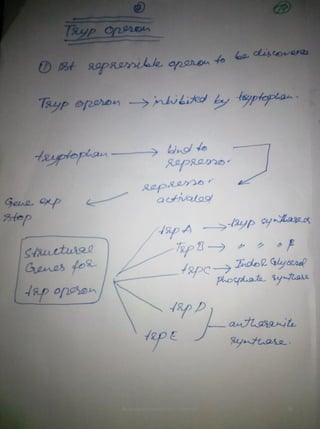 Tryp operon
① 1st repressible operon to be discovered
Tryp operon → inhibited by tryptophan.
tryptophan → bind to repressor.
repressor activated
Gene exp stop
Structural Genes for trp operon
trp A → tryp synthase α
Trp B → " " " β
trp C → Indol Glycerol phosphate synthase
trp D
trp E
anthranite synthase.